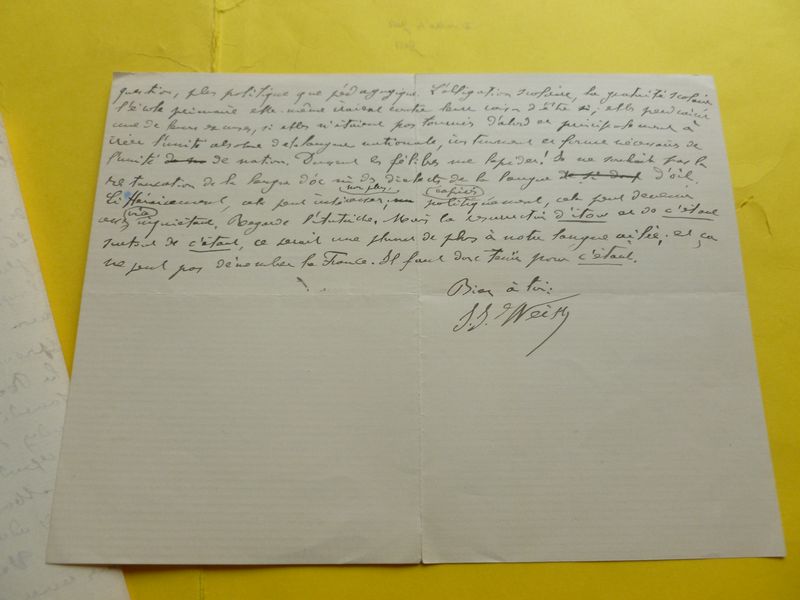 question, plus politique que pédagogique. L'obligation scolaire, la gratuité scolaire
l'école primaire elle-même iraient contre leur raison d'être si, et perdraient
une de leurs excuses, si elles n'étaient pas tournées d'abord et principalement à
créer l'unité absolue de la langue nationale, instrument et forme nécessaire de
l'unité de nation. Dussent les félibres me lapider! Je ne souhaite pas la
restauration de la langue d'oc ni des dialectes de la langue d'oil.
non plus
Littérairement, cela peut intéresser; politiquement, cela peut devenir
inquiétant. Regarde l'Autriche. Mais la résurrection d'itou et de c'étant
surtout de c'étant, ce serait une plume de plus à notre langue ailée; et ça
ne peut pas démembrer la France. Il faut donc tenir pour c'étant.
Bien à toi:
J. J. Weiss